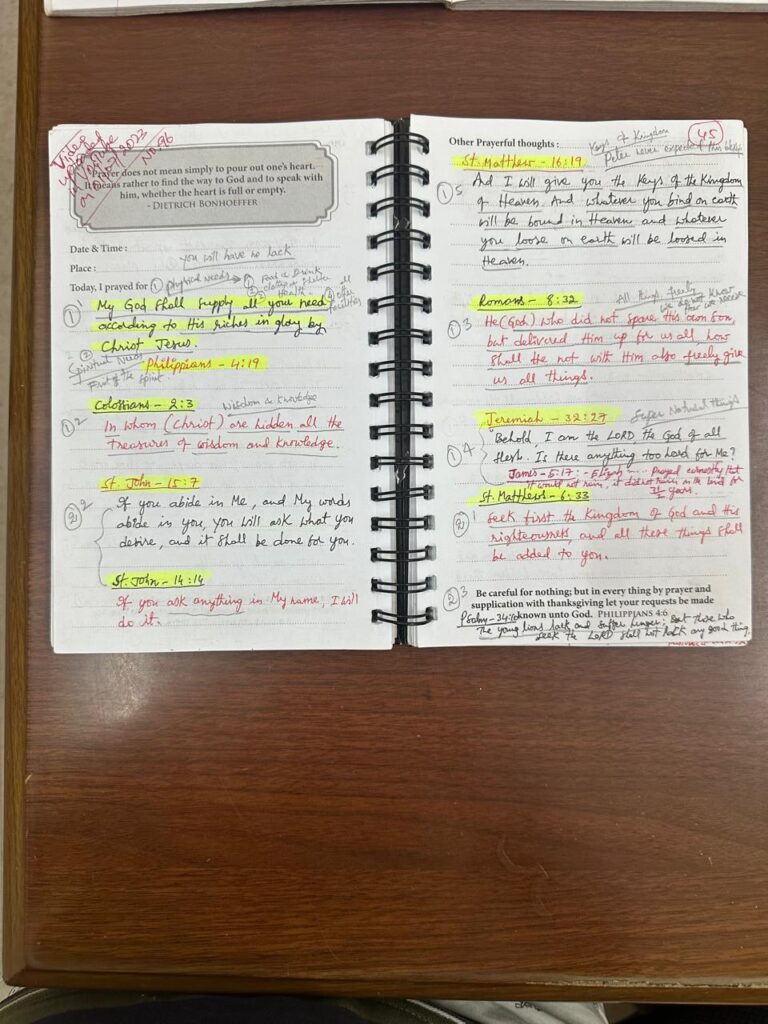 Video
uploaded
in YouTube
No. 96
Prayer does not mean simply to pour out one's heart.
It means rather to find the way to God and to speak with
him, whether the heart is full or empty.
- DIETRICH BONHOEFFER
Date & Time :
you will have no lack
Place :
Today, I prayed for ① Physical needs
Food & Drink
all
other
facilities
① 1 My God Shall Supply all your need
according to His riches in glory by
Christ Jesus.
②
Spiritual Needs
Philippians - 4:19
Fruit of the Spirit
Colossians - 2:3 Wisdom & Knowledge
① 2 In whom (Christ) are hidden all the
treasures of wisdom and knowledge.
St. John - 15:7
② 2 If you abide in Me, and My words
abide in you, you will ask what you
desire, and it shall be done for you.
St. John - 14:14
If you ask anything in My name, I will
do it.
45
Other Prayerful thoughts : Keys of Kingdom
St. Matthew - 16:19 Peter never expected this
① 5 And I will give you the Keys of the Kingdom
of Heaven. And whatever you bind on earth
will be bound in Heaven and whatever
you loose on earth will be loosed in
Heaven.
Romans - 8:32 All things freely
we do not know
how we receive
① 3 He (God) who did not spare His own Son,
but delivered Him up for us all, how
Shall He not with Him also freely give
us all things.
Jeremiah - 32:27 Super Natural things
① 4 Behold, I am the LORD, the God of all
flesh. Is there anything too hard for Me?
James - 5:17 : - Elijah ..... Prayed earnestly that
it would not rain, it did not rain on the land for
3½ years.
St. Matthew - 6:33
② 1 Seek first the Kingdom of God and His
righteousness, and all these things shall
be added to you.
② 3 Be careful for nothing; but in every thing by prayer and
supplication with thanksgiving let your requests be made
known unto God. PHILIPPIANS 4:6
Psalm - 34:10 But those who
The young lions lack and suffer hunger;
seek the LORD shall not lack any good thing.